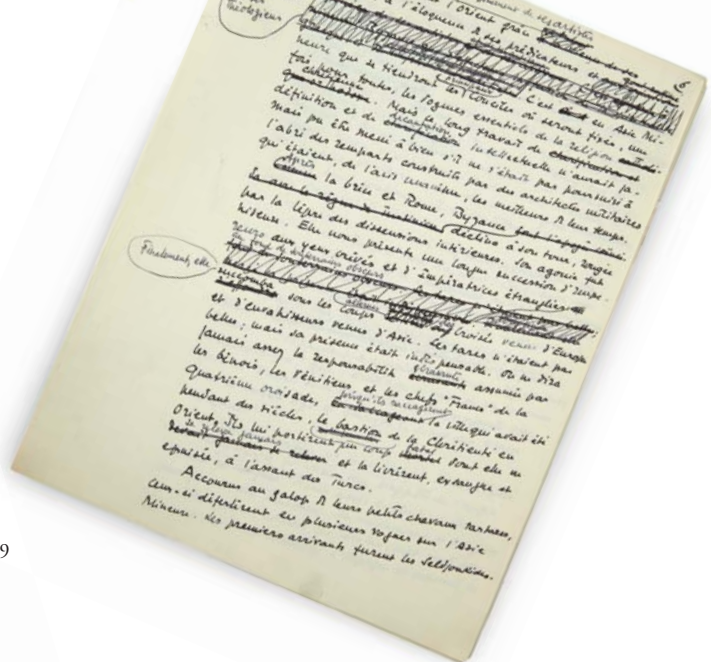 théologiens
l'Orient grâ
à l'éloquence de ses prédicateurs et
neure que se tiendront les Conciles où seront fixés, une
C'est en Asie Mi-
fois pour toutes, les dogmes essentiels de la religion
chrétienne. Mais ce long travail de
définition et de intellectuelle n'aurait ja-
mais pu être mené à bien s'il ne s'était pas poursuivi à
l'abri des remparts construits par des architectes militaires
qui étaient, de l'avis unanime, les meilleurs de leur temps.
Après la Grèce et Rome, Byzance déclina à son tour, rongée
par la lèpre des dissensions intérieures. Son agonie fut
hideuse. Elle nous présente une longue succession d'Empe-
reurs aux yeux crevés et d'Impératrices étranglées
Finalement, elle
succomba sous les coups Croisés venus d'Europe
et d'envahisseurs venus d'Asie. Ses tares n'étaient pas
belles ; mais sa présence était indispensable. On ne dira
jamais assez la responsabilité écrasante assumée par
les Génois, les Vénitiens et les chefs "Francs" de la
Quatrième croisade, lorsqu'ils saccagèrent la ville qui avait été
pendant des siècles, le bastion de la Chrétienté en
Orient. Ils lui portèrent un coup fatal dont elle ne
se releva jamais et la livrèrent, exsangue et
épuisée, à l'assaut des Turcs.
Accourus au galop de leurs petits chevaux tartares,
ceux-ci déferlèrent en plusieurs vagues sur l'Asie
Mineure. Les premiers arrivants furent les Seldjoukides.
9